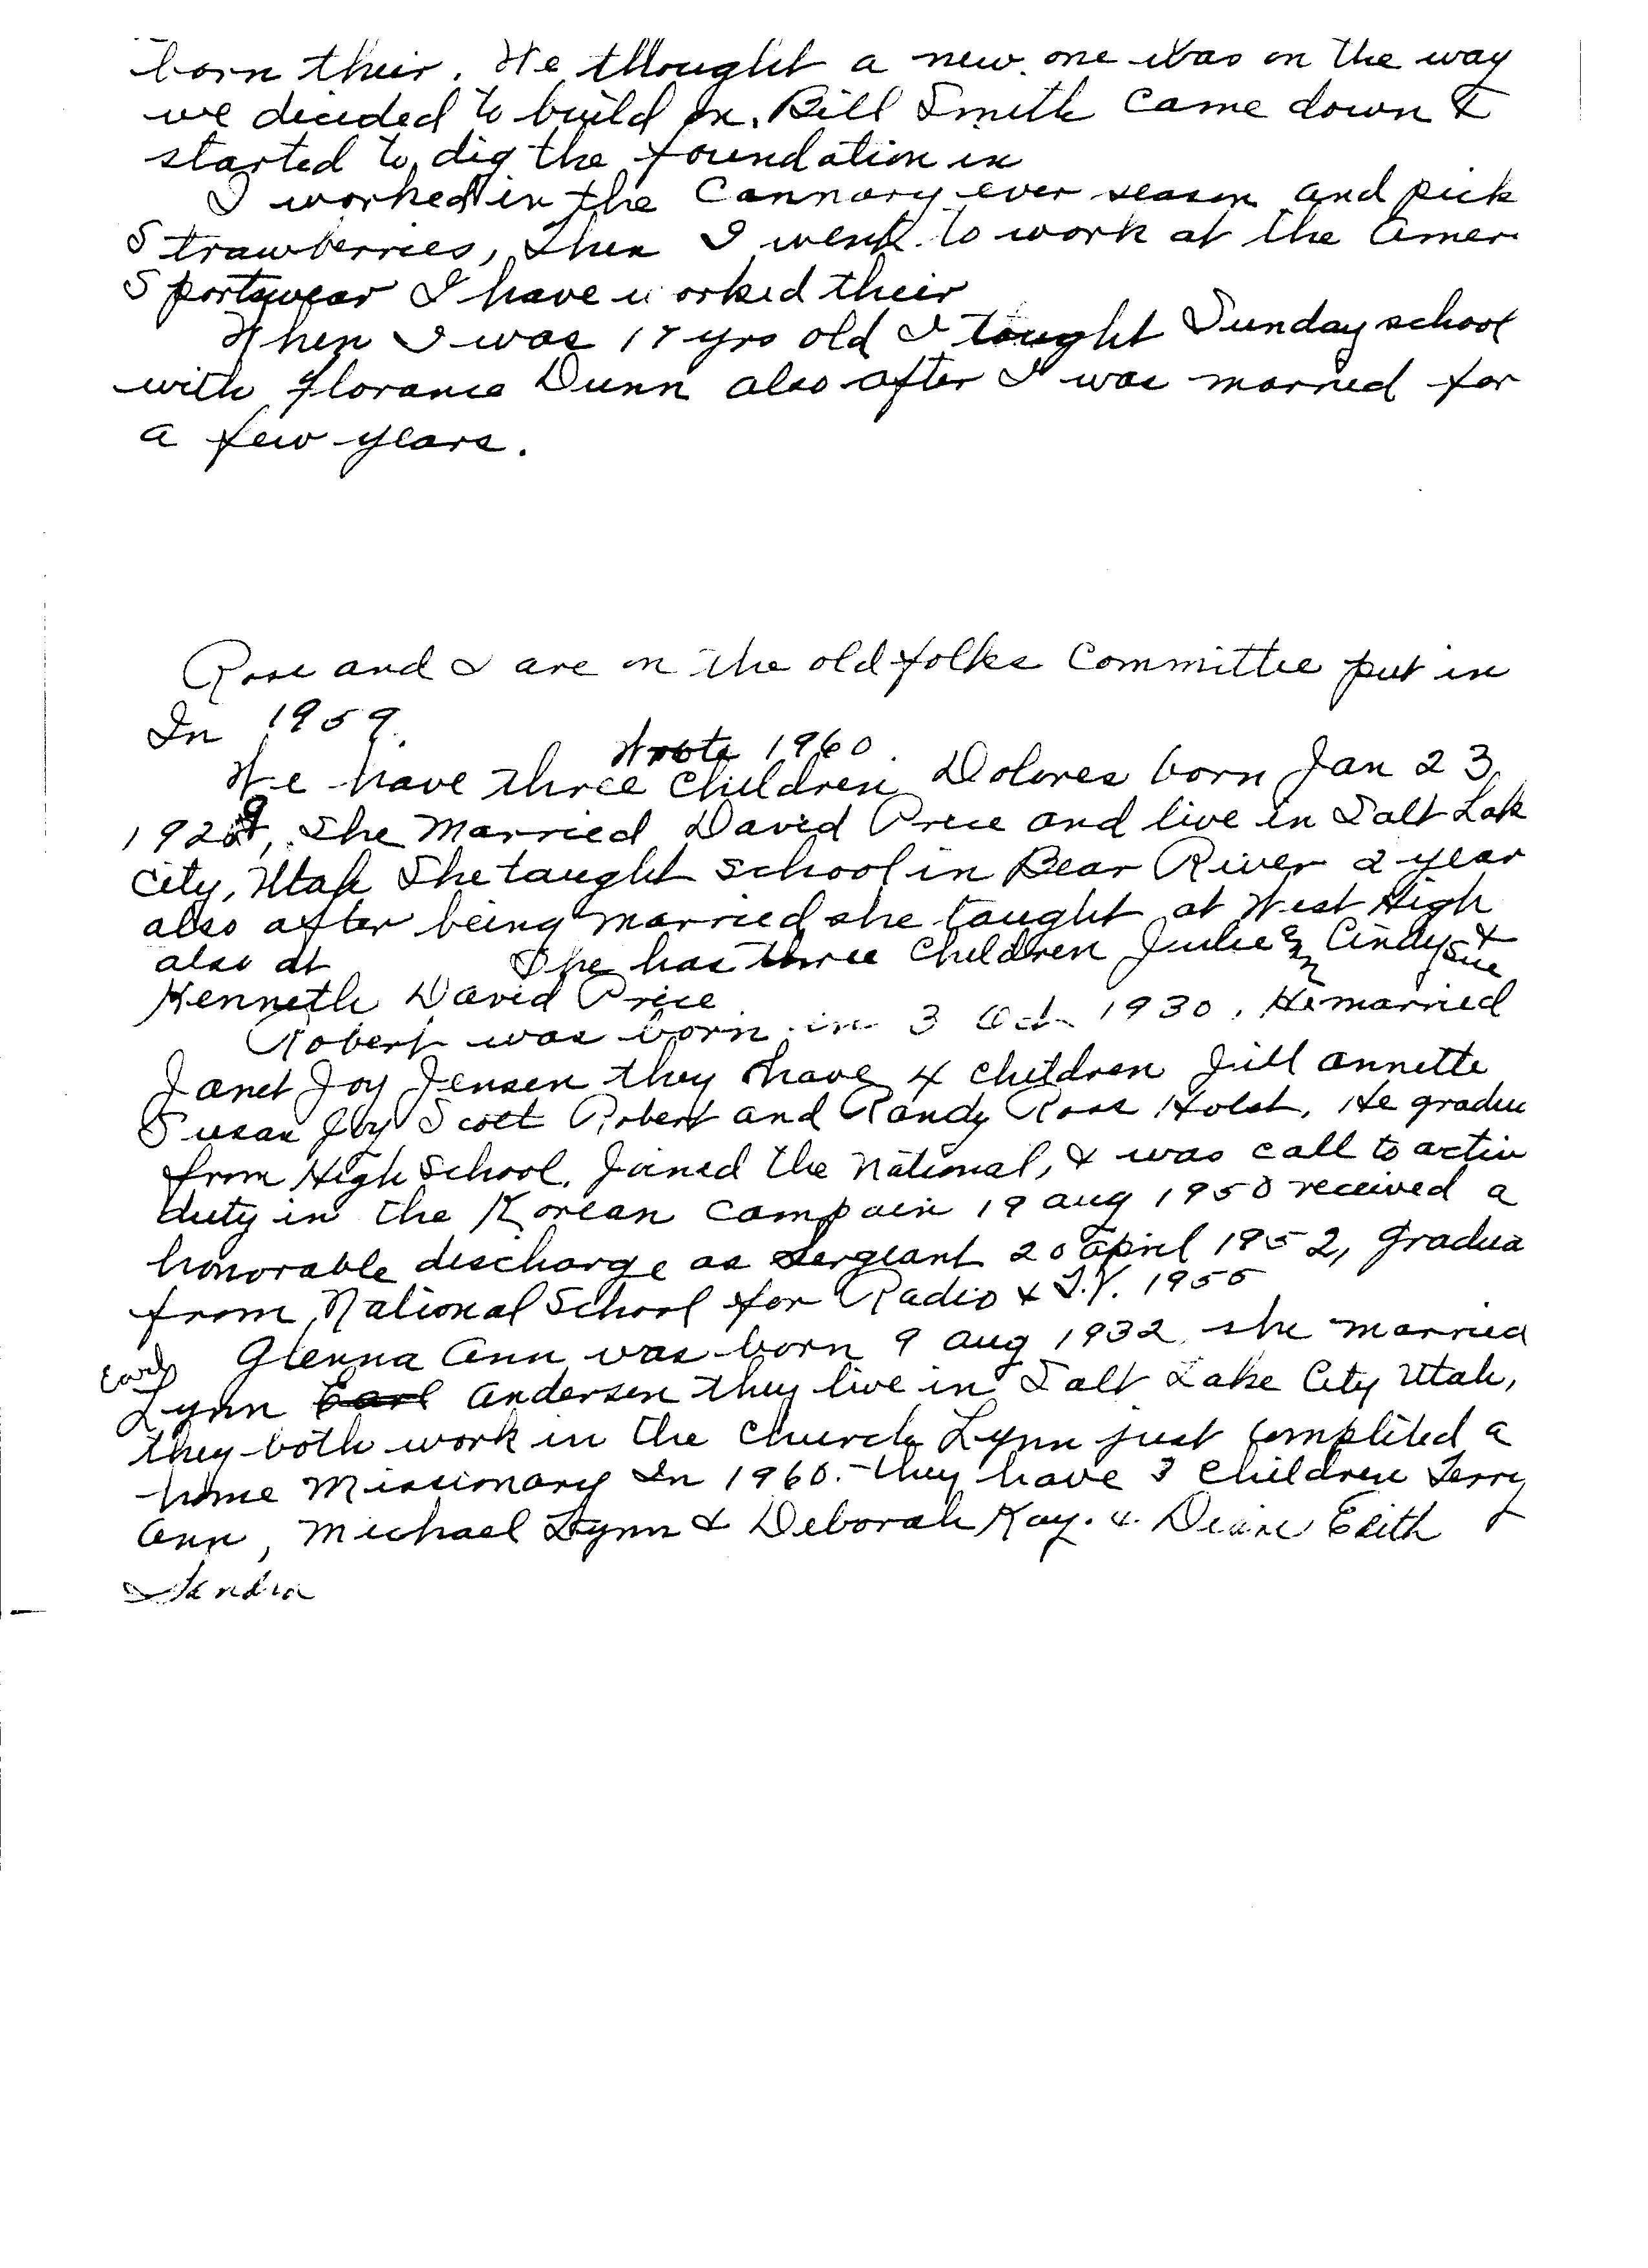 born their. We thought a new one was on the way
we decided to build on. Bill Smith came down &
started to dig the foundation in
I worked in the Cannory ever season and pick
Strawberries, then I went to work at the Amer
Sportswear I have worked their
When I was 17 yrs old I tought Sunday school
with Florance Dunn also after I was married for
a few years.
Rose and I are on the old folks Committee put in
In 1959.
Wrote 1960
We have three children Dolores born Jan 23,
1929, She Married David Price and live in Salt Lak
City, Utah She taught school in Bear River 2 year
also after being married she taught at West High
also at She has three children Julie Ann Cindy Sue &
Kenneth David Price
Robert was born in 3 Oct 1930, He married
Janet Joy Jensen they have 4 children Jill Annette
Susan Joy Scott Robert and Randy Ross Holst, He gradu
from High School, Joined the National, & was call to activ
duty in the Korean Campain 19 Aug 1950 received a
honorable discharge as Sergeant 20 April 1952, gradua
from National School for Radio & T.V. 1955
Glenna Ann was born 9 Aug 1932 she married
Earl
Lynn Earl Andersen they live in Salt Lake City Utah,
they both work in the Church Lynn just complited a
home Missionary In 1960. They have 3 children Terry
Ann, Michael Lynn & Deborah Kay. & Diane Edith
Sandra